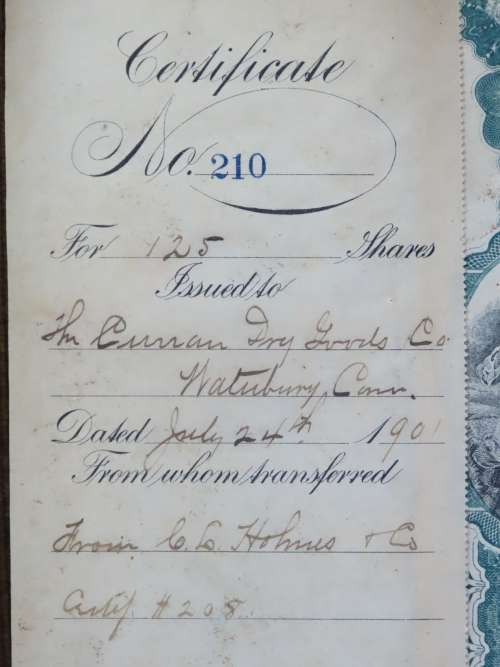 Certificate
No. 210
For 125 Shares
Issued to
The Curran Dry Goods Co
Waterbury, Conn.
Dated July 24th 1901
From whom transferred
From C. L. Holmes & Co
Certif. #208